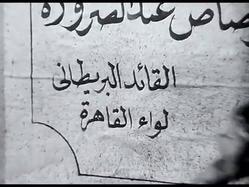 رصاص عند الضرورة
القائد البريطانى
لواء القاهرة